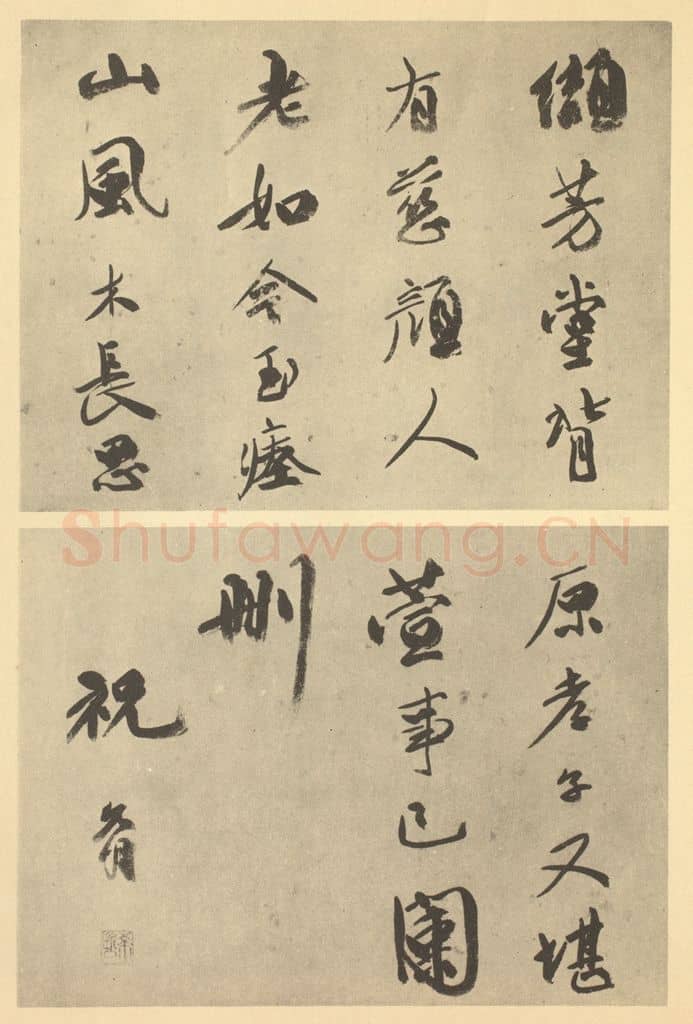 緬芳堂背
有慈顏人
老如今玉瘞
山風木長思
Shufawang.CN
原孝子又堪
萱事已闌
刪
祝